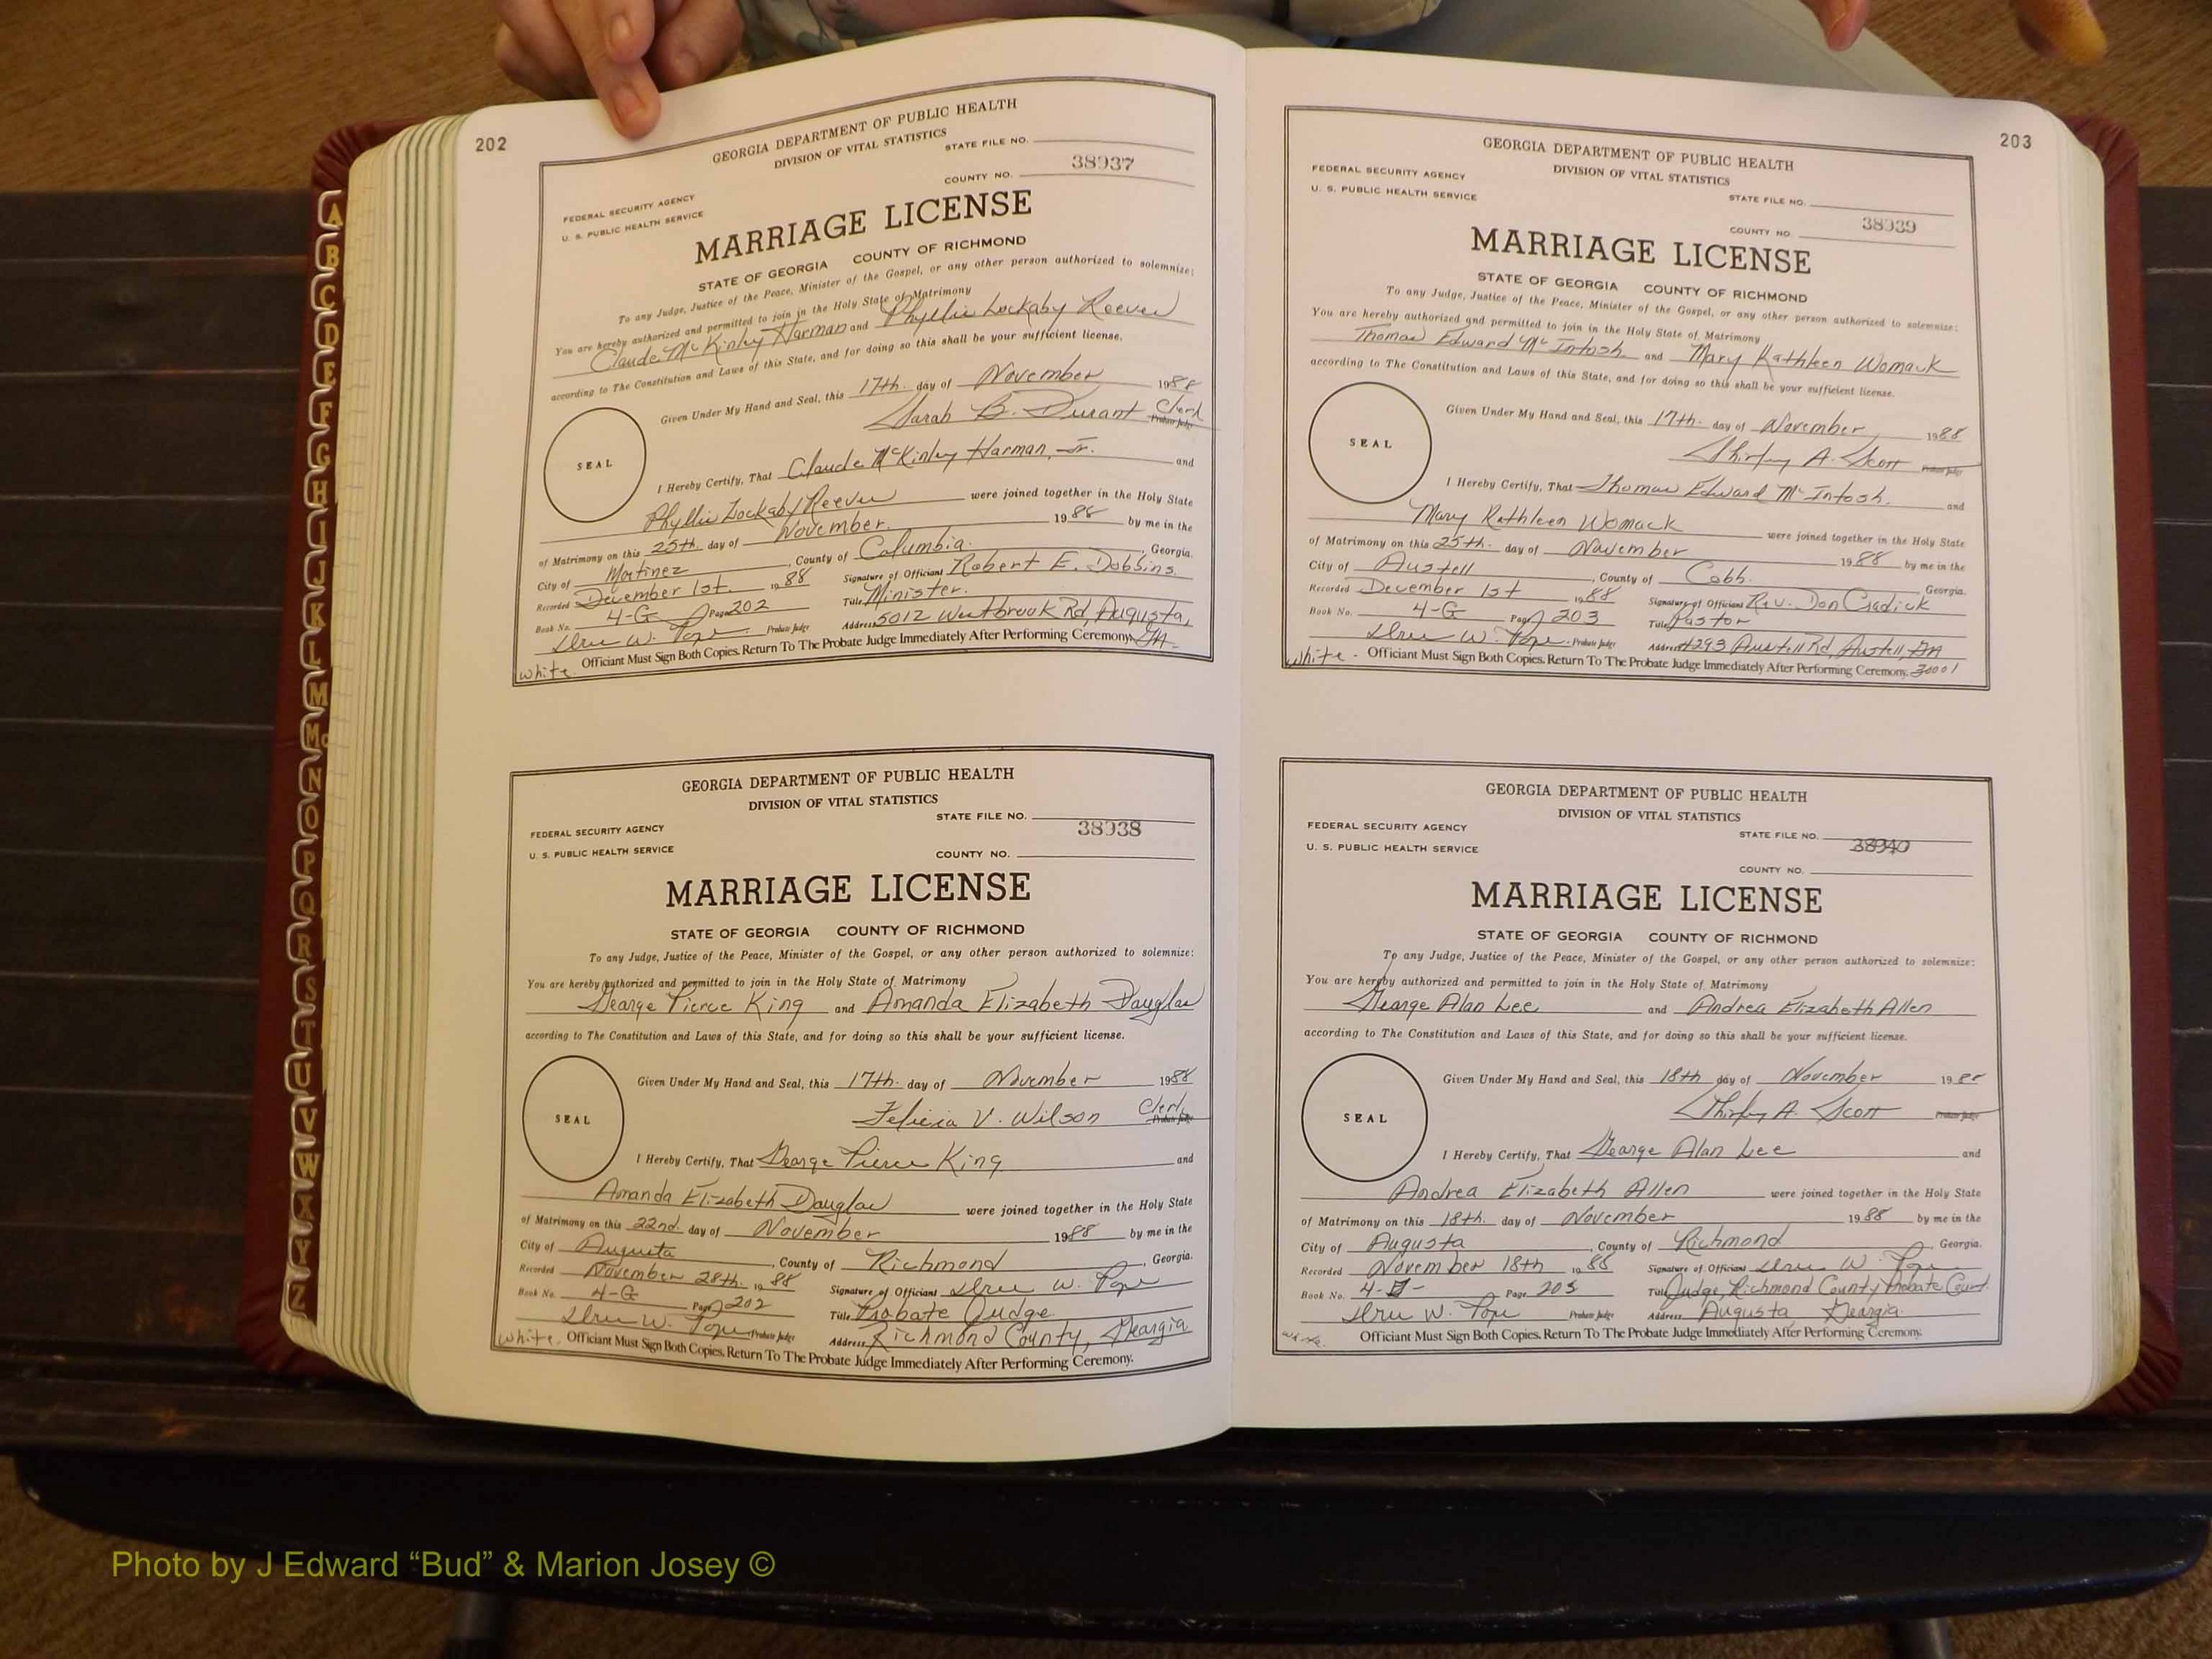 202
GEORGIA DEPARTMENT OF PUBLIC HEALTH
DIVISION OF VITAL STATISTICS
STATE FILE NO.
38937
COUNTY NO.
FEDERAL SECURITY AGENCY
U. S. PUBLIC HEALTH SERVICE
MARRIAGE LICENSE
STATE OF GEORGIA COUNTY OF RICHMOND
To any Judge, Justice of the Peace, Minister of the Gospel, or any other person authorized to solemnize:
You are hereby authorized and permitted to join in the Holy State of Matrimony
Claude McKinley Harman and Phyllis Lockaby Reeves
according to The Constitution and Laws of this State, and for doing so this shall be your sufficient license.
Given Under My Hand and Seal, this 17th. day of November 1988
Sarah B. Durant Clerk
Probate Judge
SEAL
I Hereby Certify, That Claude McKinley Harman, Jr. and
Phyllis Lockaby Reeves were joined together in the Holy State
of Matrimony on this 25th. day of November. 1988 by me in the
City of Martinez, County of Columbia., Georgia.
Recorded December 1st. 1988 Signature of Officiant Robert E. Dobbins.
Book No. 4-G Page 202 Title Minister.
Dru W. Pope Probate Judge Address 5012 Westbrook Rd, Augusta, GA.
white. Officiant Must Sign Both Copies. Return To The Probate Judge Immediately After Performing Ceremony.
GEORGIA DEPARTMENT OF PUBLIC HEALTH
DIVISION OF VITAL STATISTICS
STATE FILE NO.
38938
FEDERAL SECURITY AGENCY
U. S. PUBLIC HEALTH SERVICE
COUNTY NO.
MARRIAGE LICENSE
STATE OF GEORGIA COUNTY OF RICHMOND
To any Judge, Justice of the Peace, Minister of the Gospel, or any other person authorized to solemnize:
You are hereby authorized and permitted to join in the Holy State of Matrimony
George Pierce King and Amanda Elizabeth Douglas
according to The Constitution and Laws of this State, and for doing so this shall be your sufficient license.
Given Under My Hand and Seal, this 17th. day of November 1988
Felicia V. Wilson Clerk
Probate Judge
SEAL
I Hereby Certify, That George Pierce King and
Amanda Elizabeth Douglas were joined together in the Holy State
of Matrimony on this 22nd. day of November 1988 by me in the
City of Augusta, County of Richmond, Georgia.
Recorded November 28th. 1988 Signature of Officiant Dru W. Pope
Book No. 4-G Page 202 Title Probate Judge
Dru W. Pope Probate Judge Address Richmond County, Georgia
white. Officiant Must Sign Both Copies. Return To The Probate Judge Immediately After Performing Ceremony.
203
GEORGIA DEPARTMENT OF PUBLIC HEALTH
DIVISION OF VITAL STATISTICS
FEDERAL SECURITY AGENCY
U. S. PUBLIC HEALTH SERVICE
STATE FILE NO.
38939
COUNTY NO.
MARRIAGE LICENSE
STATE OF GEORGIA COUNTY OF RICHMOND
To any Judge, Justice of the Peace, Minister of the Gospel, or any other person authorized to solemnize:
You are hereby authorized and permitted to join in the Holy State of Matrimony
Thomas Edward McIntosh and Mary Kathleen Womack
according to The Constitution and Laws of this State, and for doing so this shall be your sufficient license.
Given Under My Hand and Seal, this 17th. day of November 1988
Shirley A. Scott Probate Judge
SEAL
I Hereby Certify, That Thomas Edward McIntosh. and
Mary Kathleen Womack were joined together in the Holy State
of Matrimony on this 25th. day of November 1988 by me in the
City of Austell, County of Cobb., Georgia.
Recorded December 1st 1988 Signature of Officiant Rev. Don Cradick
Book No. 4-G Page 203 Title Pastor
Dru W. Pope. Probate Judge Address 4293 Austell Rd, Austell, GA 30001
white - Officiant Must Sign Both Copies. Return To The Probate Judge Immediately After Performing Ceremony.
GEORGIA DEPARTMENT OF PUBLIC HEALTH
DIVISION OF VITAL STATISTICS
FEDERAL SECURITY AGENCY
U. S. PUBLIC HEALTH SERVICE
STATE FILE NO.
38940
COUNTY NO.
MARRIAGE LICENSE
STATE OF GEORGIA COUNTY OF RICHMOND
To any Judge, Justice of the Peace, Minister of the Gospel, or any other person authorized to solemnize:
You are hereby authorized and permitted to join in the Holy State of Matrimony
George Alan Lee and Andrea Elizabeth Allen
according to The Constitution and Laws of this State, and for doing so this shall be your sufficient license.
Given Under My Hand and Seal, this 18th day of November 1988
Shirley A. Scott Probate Judge
SEAL
I Hereby Certify, That George Alan Lee and
Andrea Elizabeth Allen were joined together in the Holy State
of Matrimony on this 18th. day of November 1988 by me in the
City of Augusta, County of Richmond, Georgia.
Recorded November 18th 1988 Signature of Officiant Dru W. Pope
Book No. 4- Page 203 Title Judge, Richmond County Probate Court
Dru W. Pope Probate Judge Address Augusta, Georgia.
Officiant Must Sign Both Copies. Return To The Probate Judge Immediately After Performing Ceremony.
A
B
C
D
E
F
G
H
I
J
K
L
M
Mc
N
O
P
Q
R
S
T
U
V
W
X
Y
Z
Photo by J Edward “Bud” & Marion Josey ©